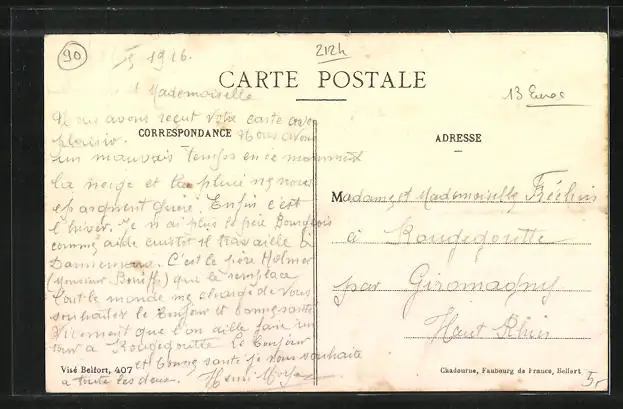 90
1916.
212h
CARTE POSTALE
13 Euros
Mademoiselle
Nous avons reçut votre carte avec
plaisir. Nous avons
CORRESPONDANCE
ADRESSE
un mauvais temps en ce moment
la neige et la pluie ne nous
épargnent guère. Enfin c'est
l'hiver. Je n'ai plus le père Bourgeois
comme aide cuistot il travaille à
C'est le père Holmer
(Monsieur) qui le remplace
tout le monde me charge de vous
souhaiter le bonjour et bonne santé
Vivement que l'on aille faire un
tour à Rougegoutte Le bonjour
et bonne santé je vous souhaite
à toute les deux. Henri
Madame et Mademoiselle Fréchin
à Rougegoutte
par Giromagny
Haut Rhin
Visé Belfort, 407
Chadourne, Faubourg de France, Belfort
5,-